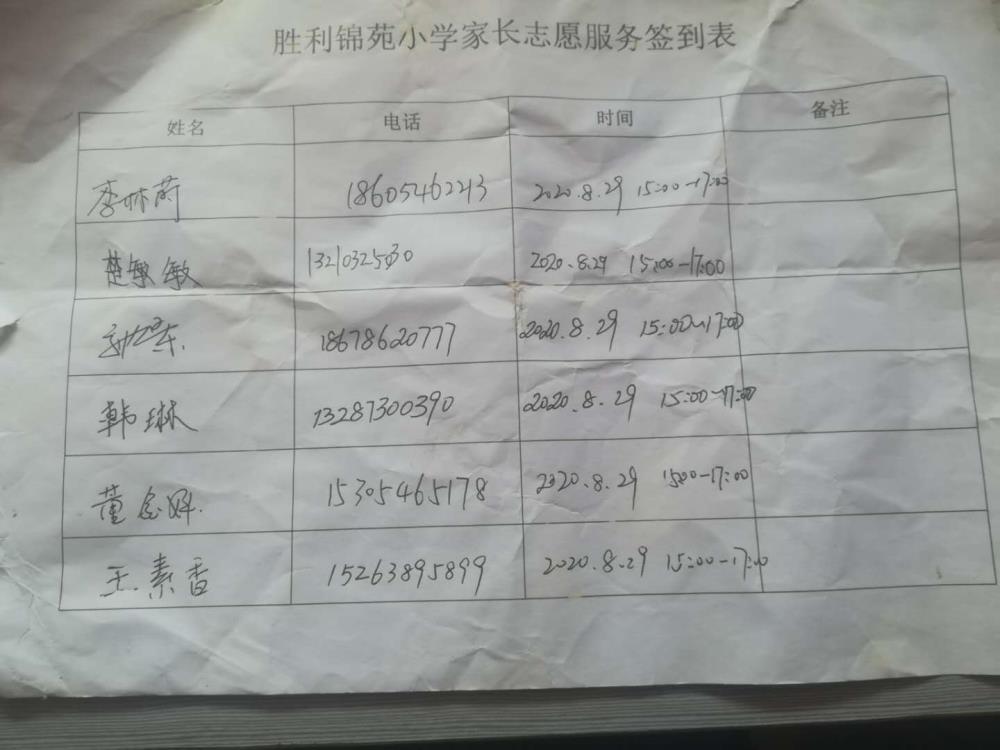 胜利锦苑小学家长志愿服务签到表
姓名 电话 时间 备注
李林蔚 18605462243 2020.8.29 15:00-17:00
楚敏敏 13210325030 2020.8.29 15:00-17:00
东 18678620777 2020.8.29 15:00-17:00
韩琳 13287300390 2020.8.29 15:00-17:00
董 15305465178 2020.8.29 15:00-17:00
王素香 15263895899 2020.8.29 15:00-17:00